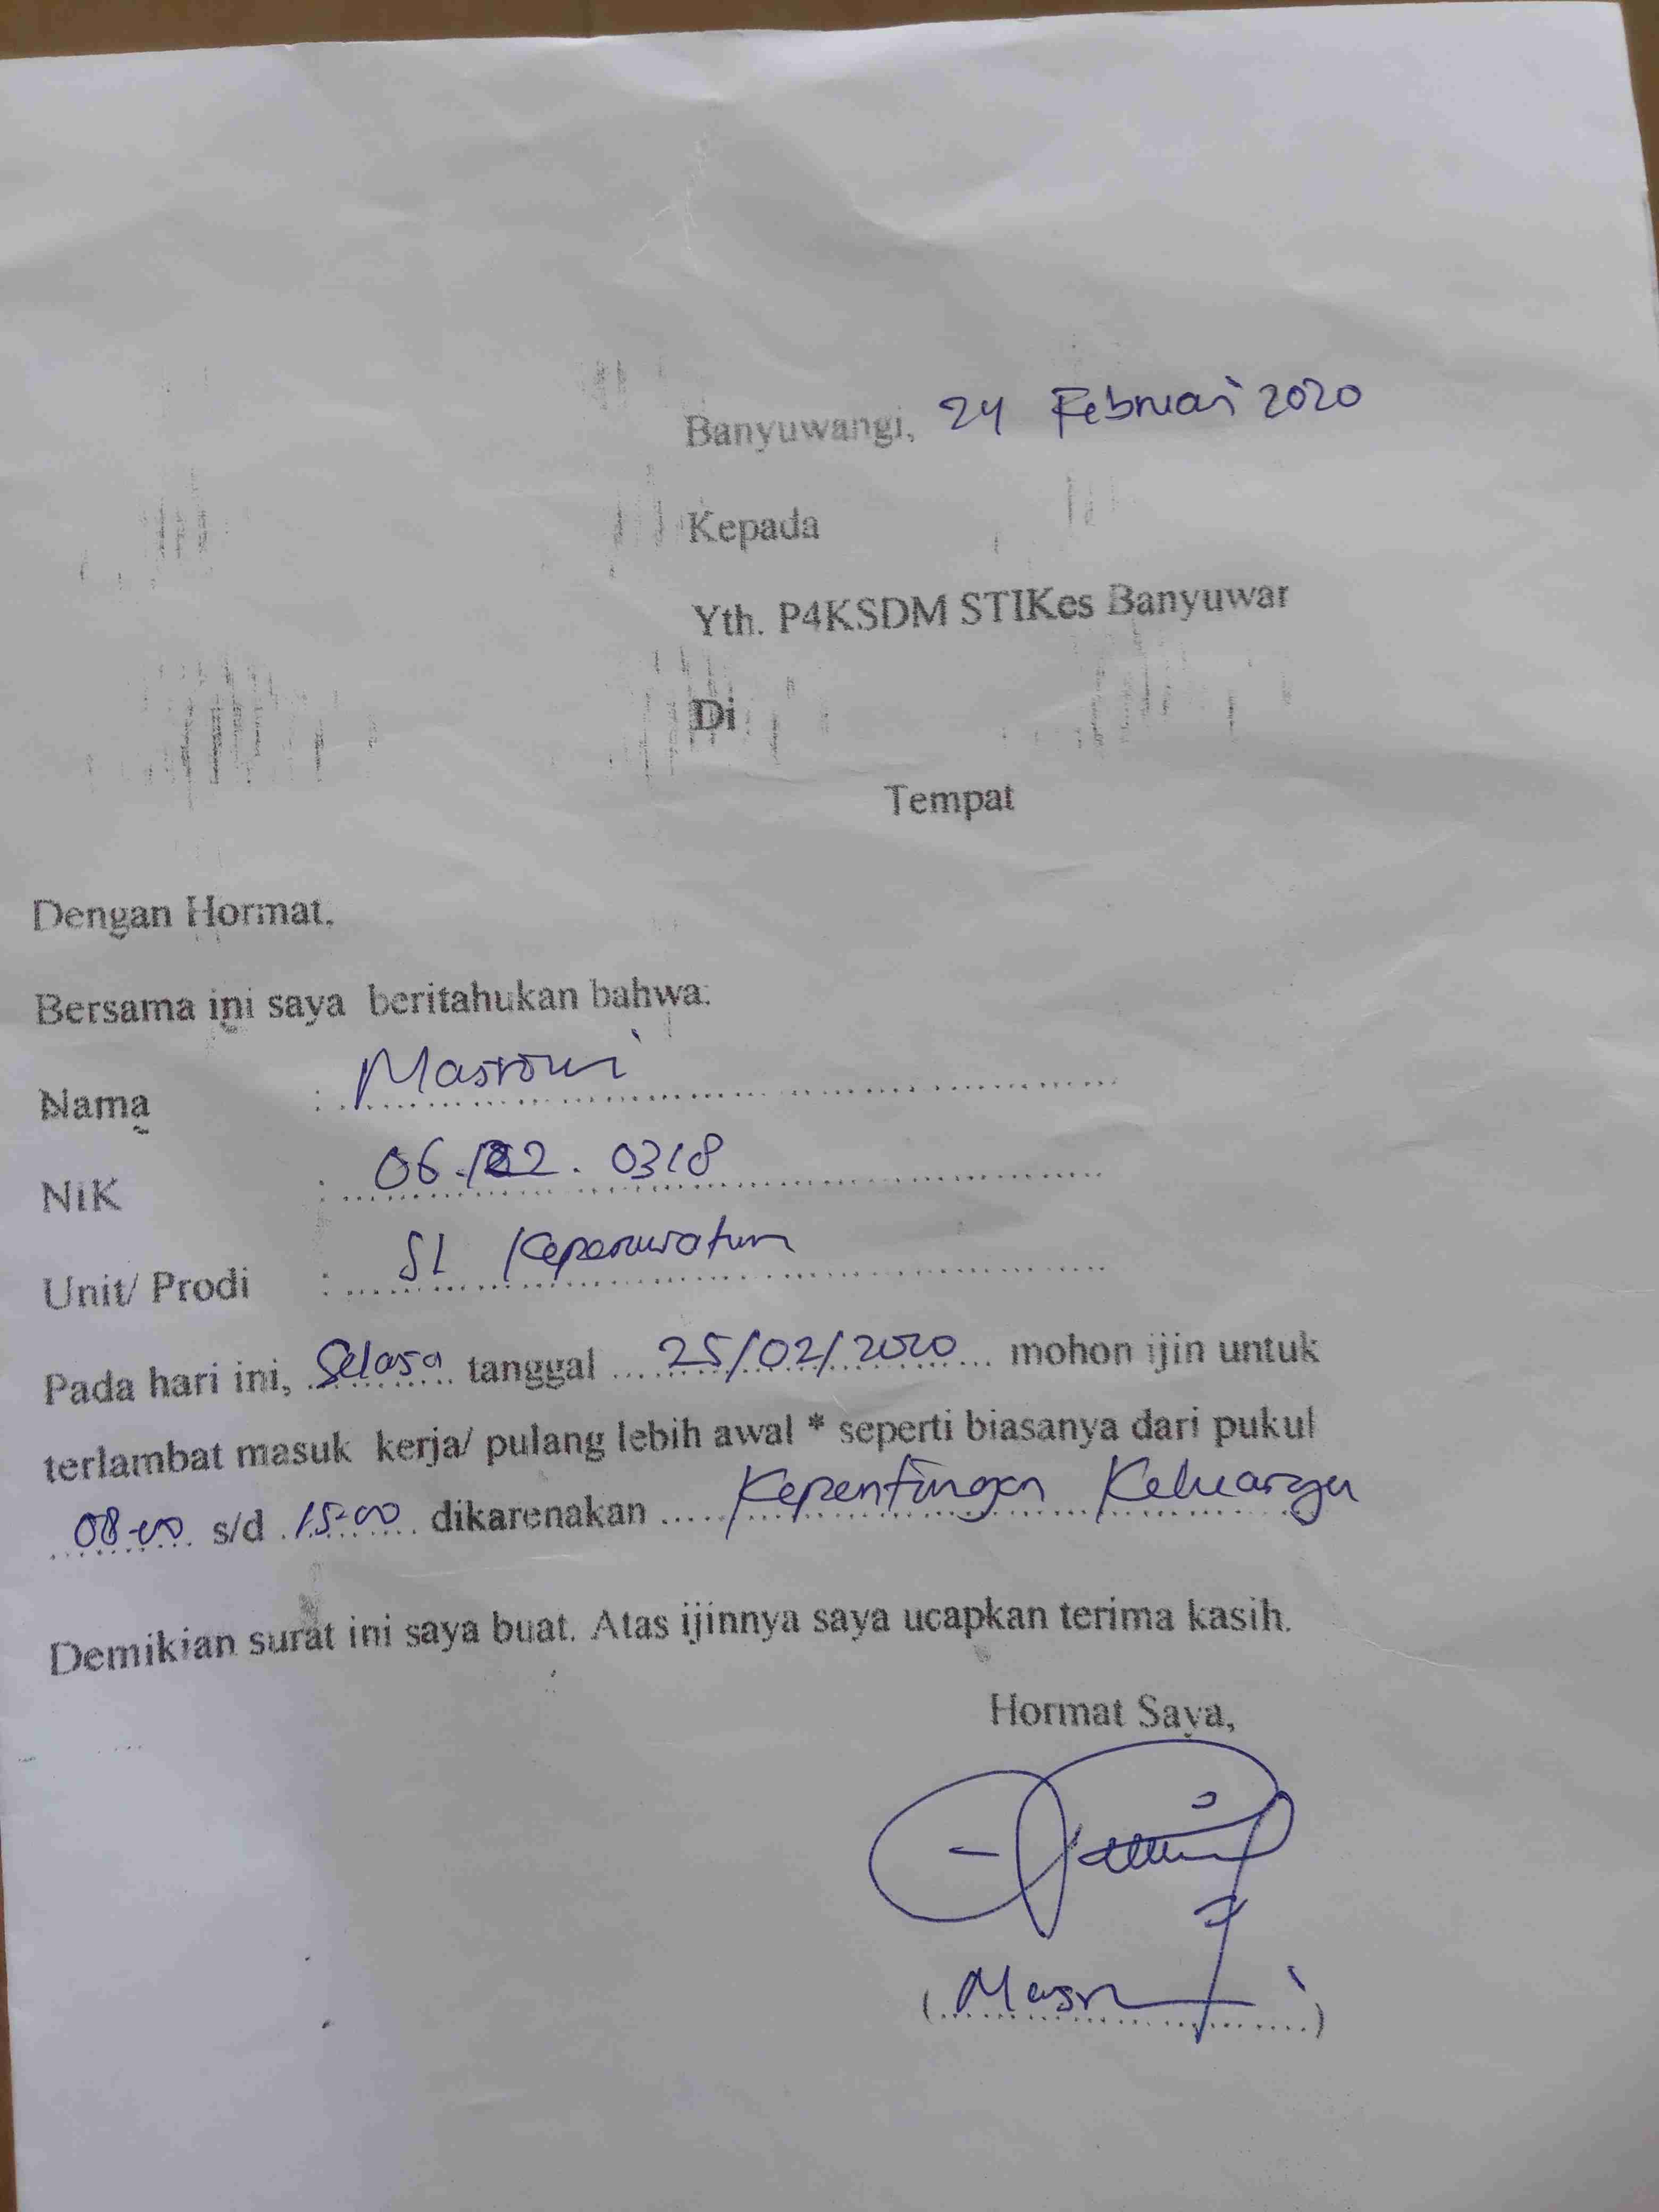 Banyuwangi, 24 Februari 2020
Kepada
Yth. P4KSDM STIKes Banyuwar
Di
Tempat
Dengan Hormat,
Bersama ini saya beritahukan bahwa:
Nama : Masroni
NIK : 0318
Unit/ Prodi : S1 Keperawatan
Pada hari ini, Selasa tanggal 25/02/2020 mohon ijin untuk
terlambat masuk kerja/ pulang lebih awal * seperti biasanya dari pukul
08-00 s/d 15-00 dikarenakan Kepentingan Keluarga
Demikian surat ini saya buat. Atas ijinnya saya ucapkan terima kasih.
Hormat Saya,
(Masroni)